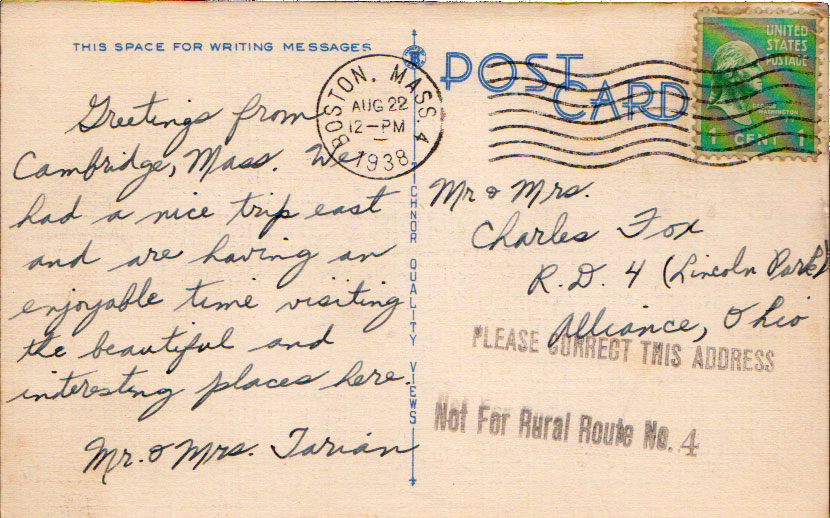 THIS SPACE FOR WRITING MESSAGES
Greetings from
Cambridge, Mass. We
had a nice trip east
and are having an
enjoyable time visiting
the beautiful and
interesting places here.
Mr. & Mrs. Tarian
TICHNOR QUALITY VIEWS
POST
CARD
BOSTON, MASS. 4
AUG 22
12-PM
1938
UNITED
STATES
POSTAGE
GEORGE
WASHINGTON
1 CENT 1
Mr & Mrs.
Charles Fox
R.D. 4 (Lincoln Park)
Alliance, Ohio
PLEASE CORRECT THIS ADDRESS
Not For Rural Route No. 4